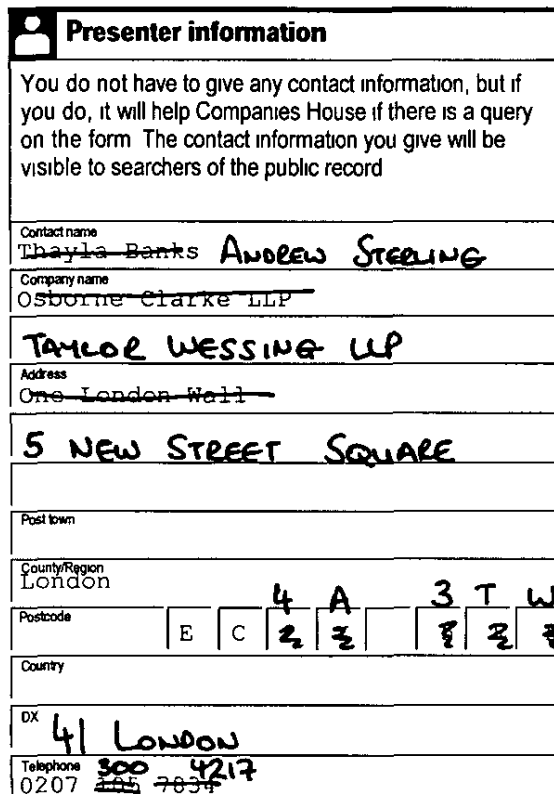 Presenter information
You do not have to give any contact information, but if
you do, it will help Companies House if there is a query
on the form The contact information you give will be
visible to searchers of the public record
Contact name
Thayla Banks ANDREW STERLING
Company name
Osborne Clarke LLP
TAYLOR WESSING LLP
Address
One London Wall
5 NEW STREET SQUARE
Post town
County/Region
London
4 A 3 T W
Postcode
E C
Country
DX 41 LONDON
Telephone 300 4217
0207 7834